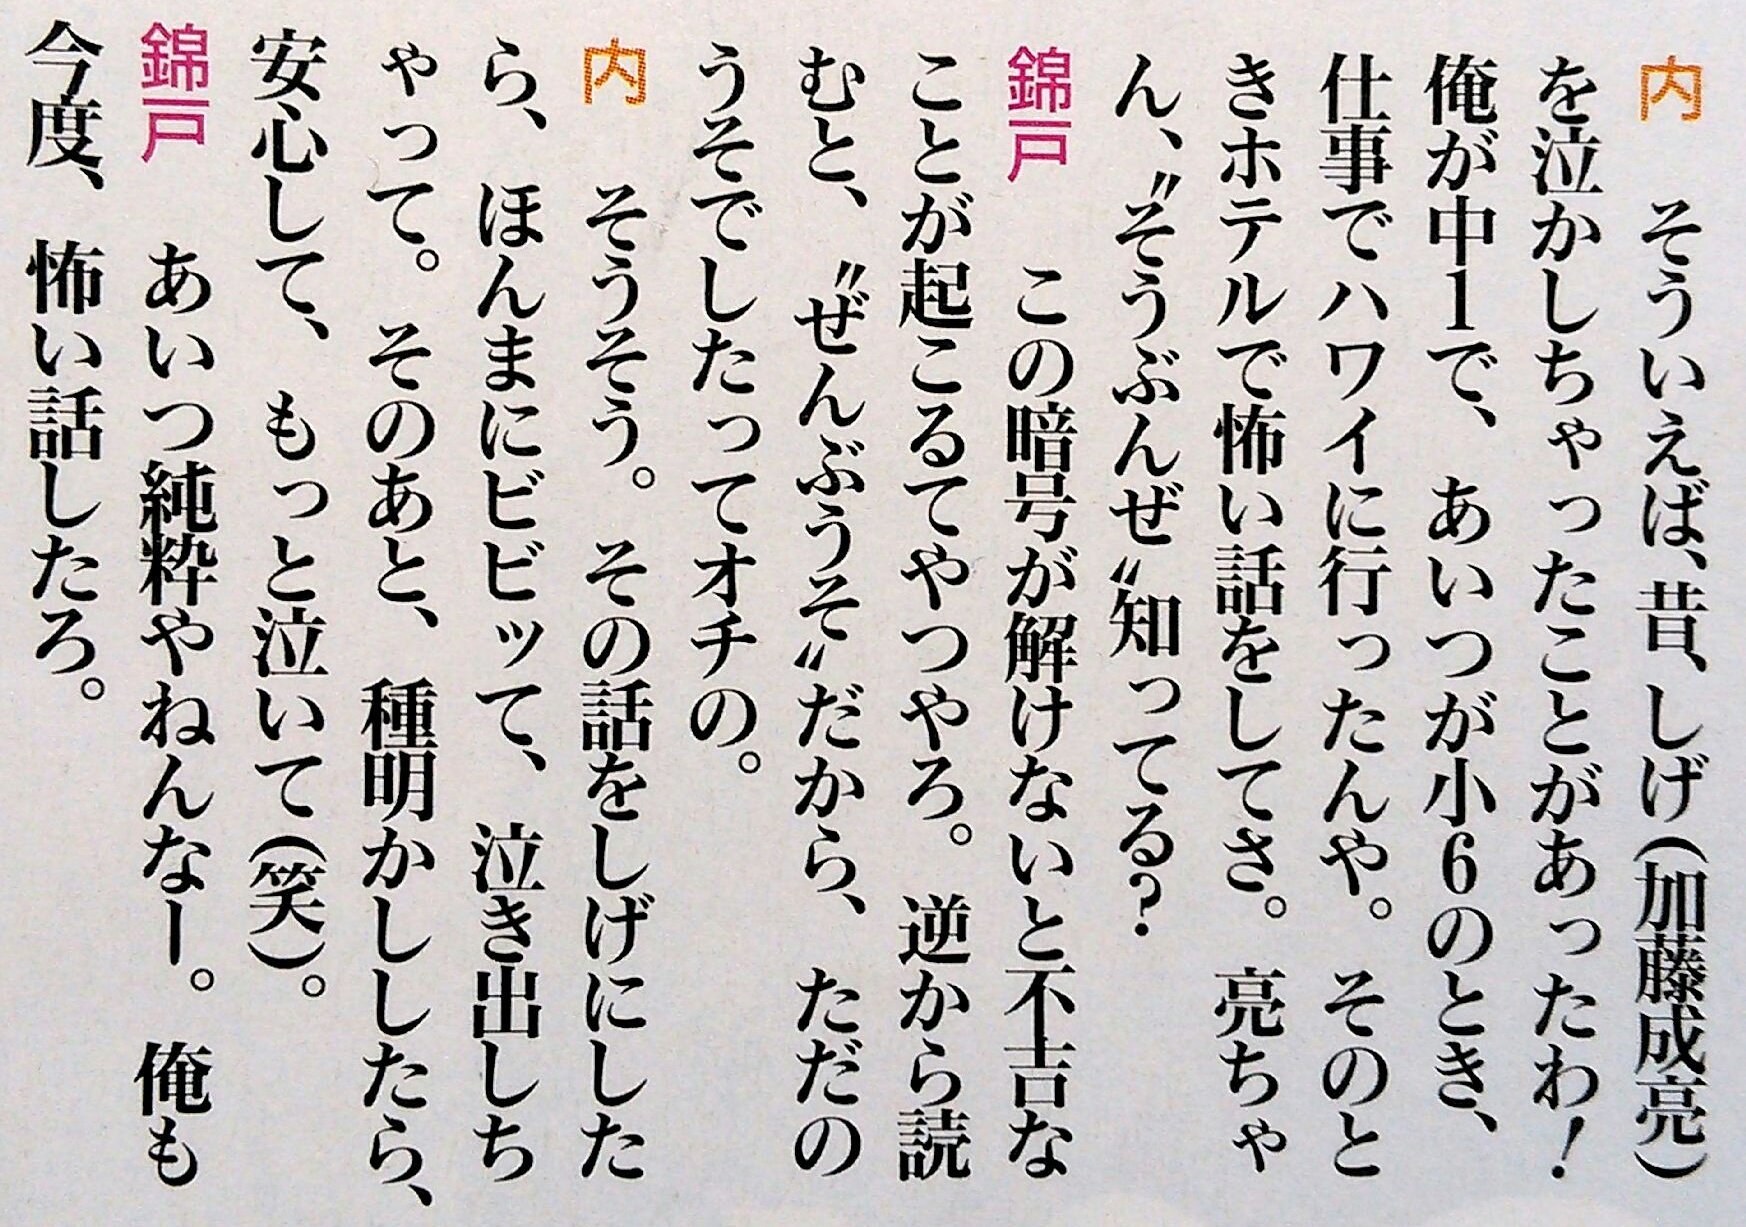 内　そういえば、昔、しげ(加藤成亮)
を泣かしちゃったことがあったわ!
俺が中1で、あいつが小6のとき、
仕事でハワイに行ったんや。そのと
きホテルで怖い話をしてさ。亮ちゃ
ん、〝そうぶんぜ〟知ってる?
錦戸　この暗号が解けないと不吉な
ことが起こるてやつやろ。逆から読
むと、〝ぜんぶうそ〟だから、ただの
うそでしたってオチの。
内　そうそう。その話をしげにした
ら、ほんまにビビッて、泣き出しち
ゃって。そのあと、種明かししたら、
安心して、もっと泣いて(笑)。
錦戸　あいつ純粋やねんなー。俺も
今度、怖い話したろ。